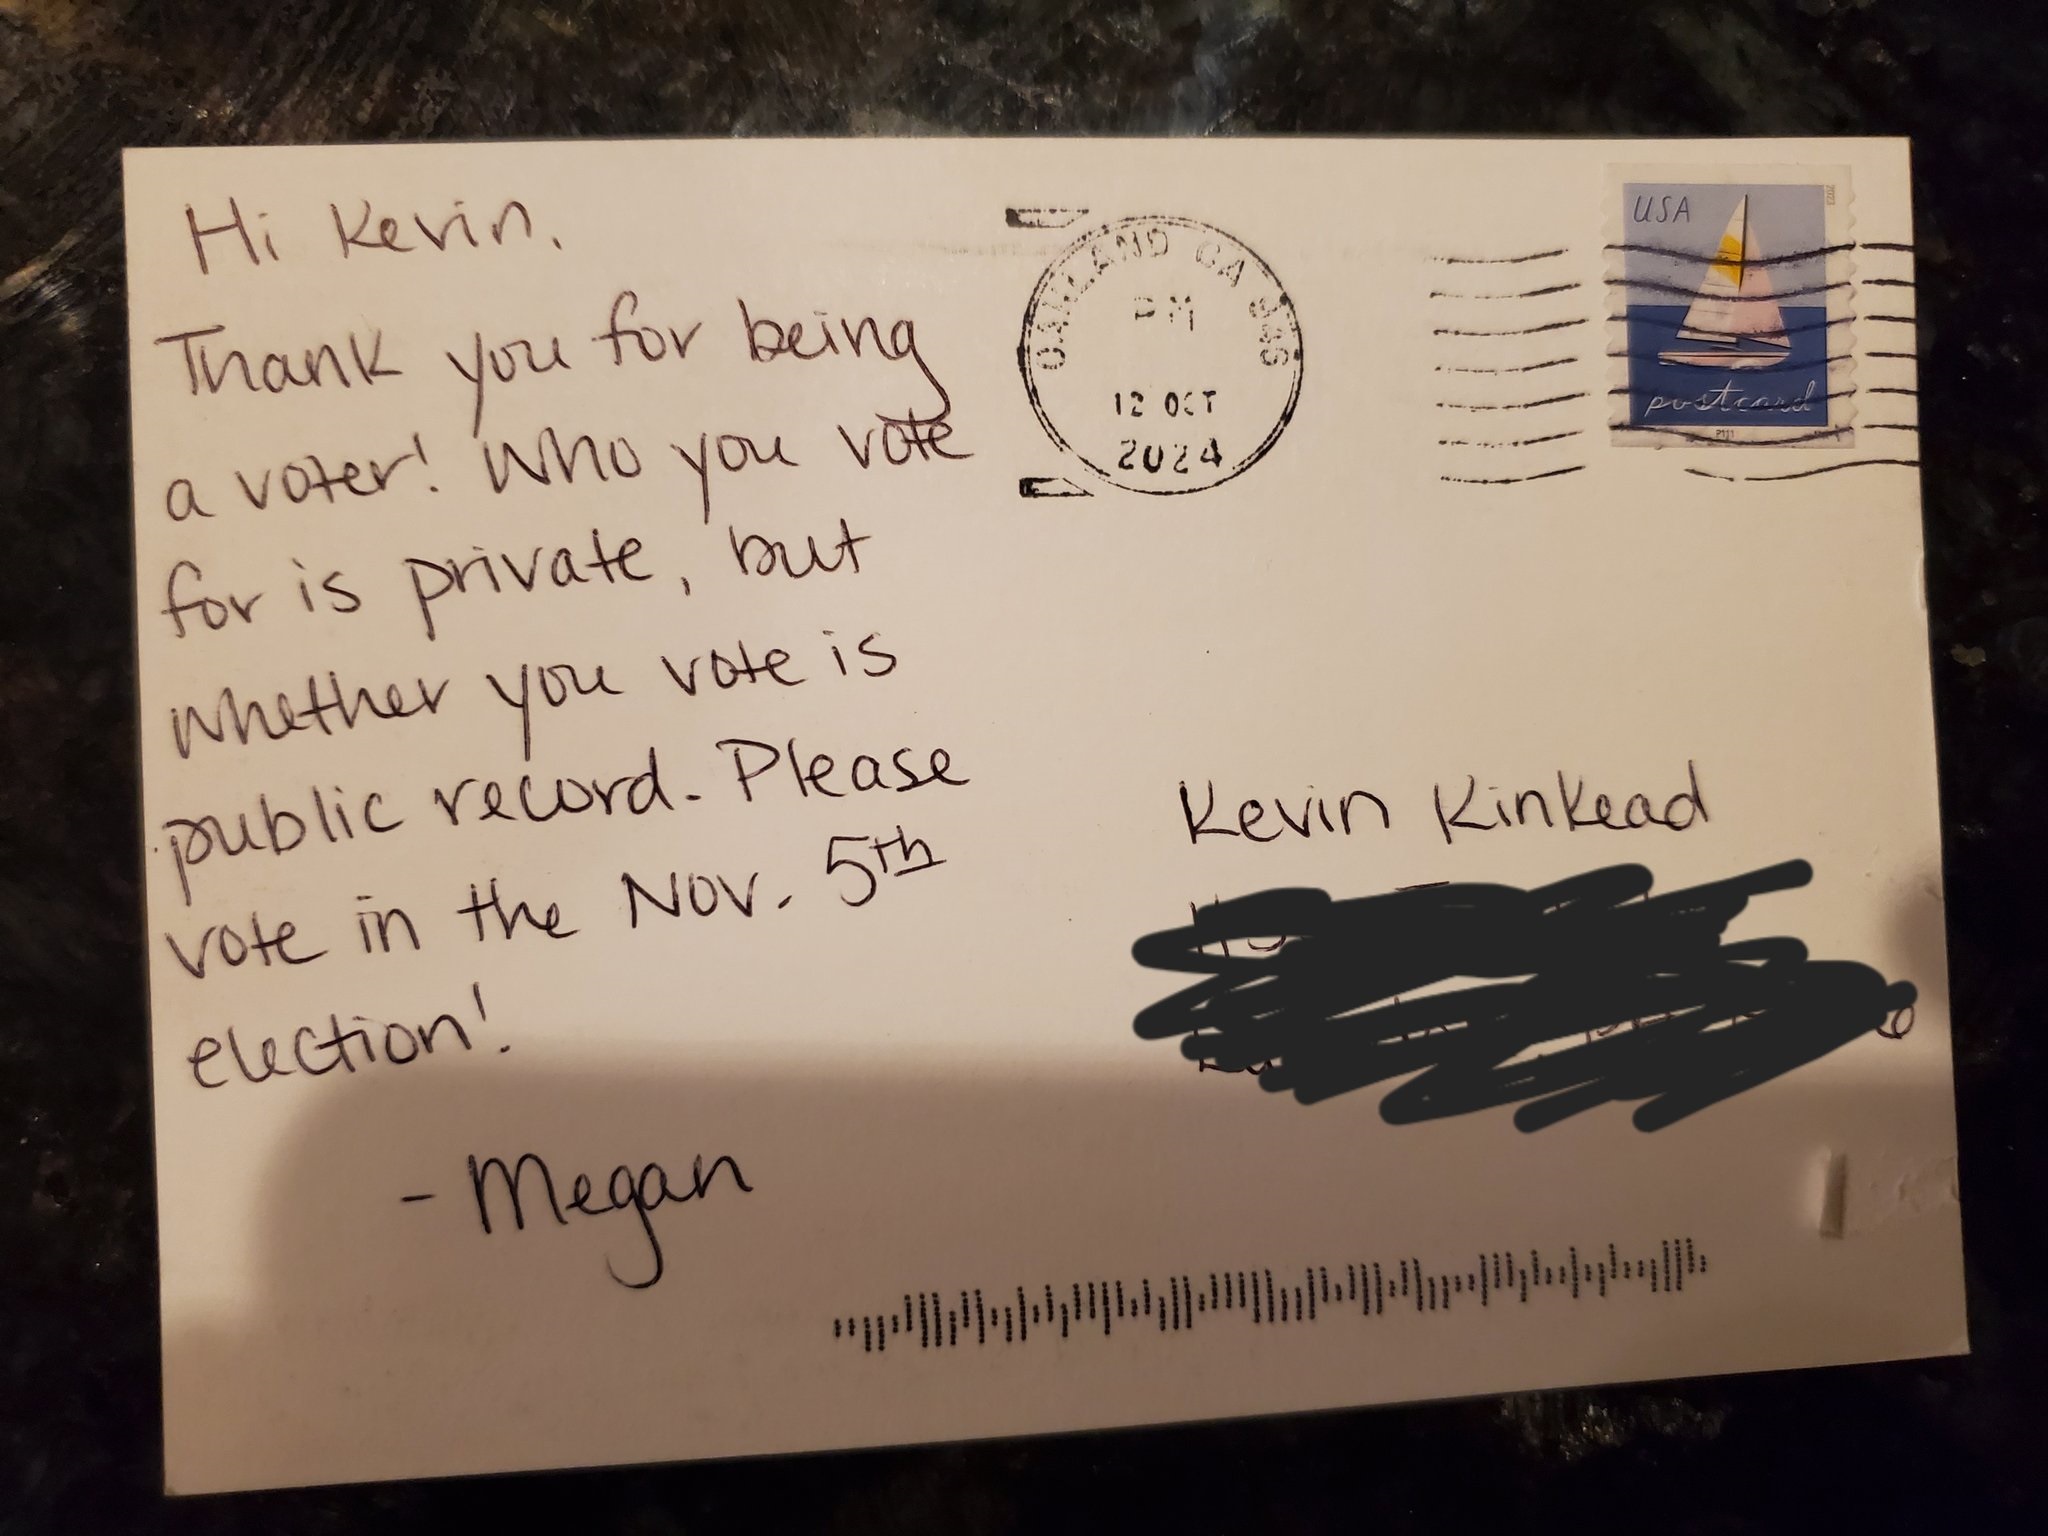 Hi Kevin,
Thank you for being
a voter! Who you vote
for is private, but
whether you vote is
public record. Please
vote in the Nov. 5th
election!
- Megan
OAKLAND CA 946
PM
12 OCT
2024
USA
2023
postcard
P1111
Kevin Kinkead